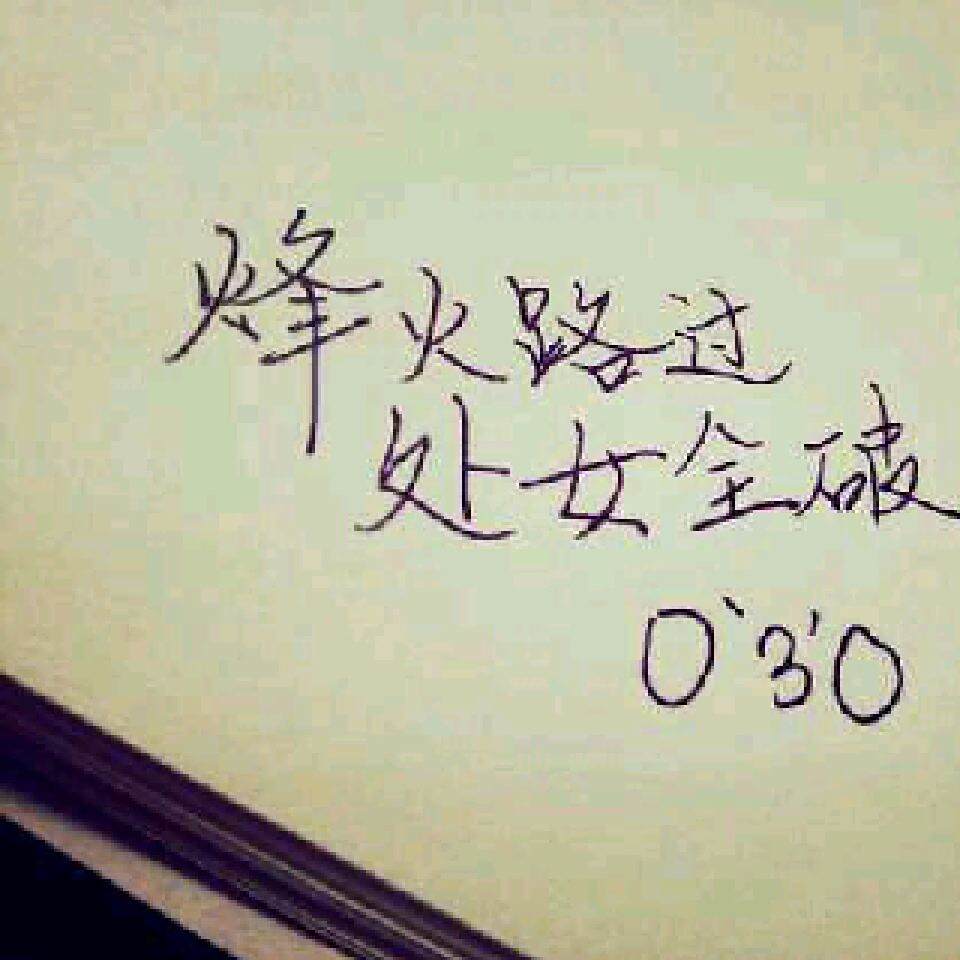 烽火路过
处女全破
0`3'0